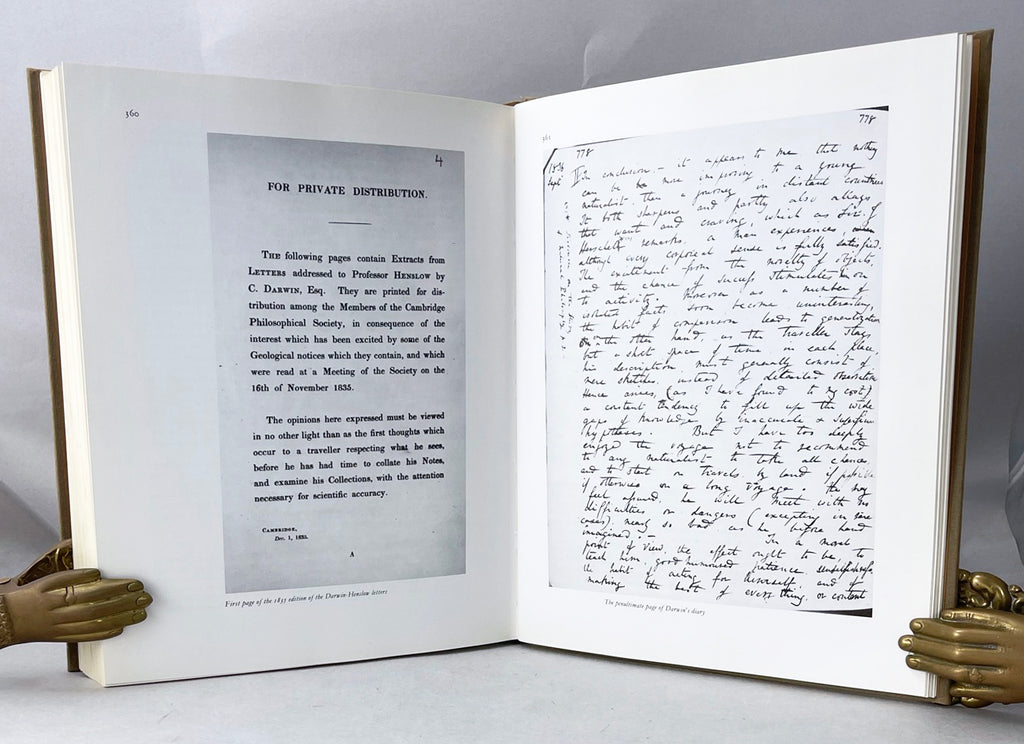 360
4
FOR PRIVATE DISTRIBUTION.
The following pages contain Extracts from
Letters addressed to Professor Henslow by
C. Darwin, Esq. They are printed for dis-
tribution among the Members of the Cambridge
Philosophical Society, in consequence of the
interest which has been excited by some of the
Geological notices which they contain, and which
were read at a Meeting of the Society on the
16th of November 1835.
The opinions here expressed must be viewed
in no other light than as the first thoughts which
occur to a traveller respecting what he sees,
before he has had time to collate his Notes,
and examine his Collections, with the attention
necessary for scientific accuracy.
Cambridge,
Dec. 1, 1835.
A
First page of the 1835 edition of the Darwin-Henslow letters
361
778
778
1836
Sept
In conclusion, – it appears to me that nothing
can be more improving to a young
naturalist, than a journey in distant countries
It both sharpens and partly also allays
that want and craving, which as Sir. J
Herschel remarks, a man experiences,
although every corporeal sense is fully satisfied.
The excitement from the novelty of objects,
and the chance of success stimulates him
to activity. Moreover as a number of
isolated facts soon become uninteresting,
the habit of comparison leads to generalization
on the other hand, as the traveller stays
but a short space of time in each place,
his description must generally consist of
mere sketches, instead of detailed observation
Hence arises, (as I have found to my cost)
a constant tendency to fill up the wide
gaps of knowledge by inaccurate & superficial
hypotheses. But I have too deeply
enjoyed the voyage not to recommend
to any naturalist to take all chances
and to start on travels by land if possible
if otherwise on a long voyage. He may
feel assured, he will meet with no
difficulties or dangers (excepting in rare
cases) nearly so bad as he before hand
imagined. – In a moral
point of view, the effect ought to be, to
teach him good humoured patience,
the habit of acting for himself, and of
making the best of everything, or content
The penultimate page of Darwin's diary